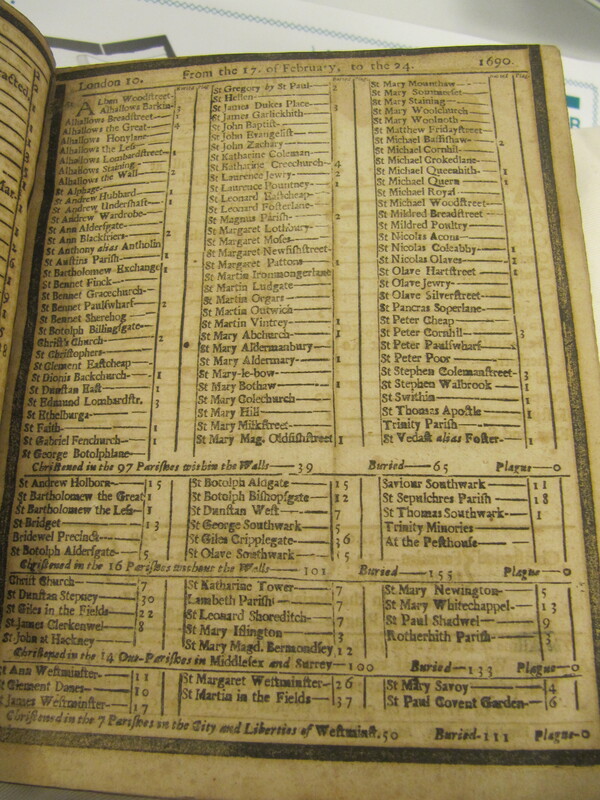 London 10. From the 17. of February, to the 24. 1690.
St Alban Woodstreet
Alhallows Barkin 3
Alhallows Breadstreet 1
Alhallows the Great 4
Alhallows Honylane
Alhallows the Less
Alhallows Lombardstreet 1
Alhallows Staining
Alhallows the Wall 2
St Alphage
St Andrew Hubbard 1
St Andrew Undershaft 1
St Andrew Wardrobe
St Ann Aldersgate
St Ann Blackfriers 2
St Anthony alias Antholin
St Austins Parish 1
St Bartholomew Exchange 1
St Bennet Finck
St Bennet Gracechurch
St Bennet Paulswharf 2
St Bennet Sherehog
St Botolph Billingsgate
Christ's Church 2
St Christophers
St Clement Eastcheap
St Dionis Backchurch 1
St Dunstan East 1
St Edmund Lombardstr. 3
St Ethelburga
St Faith 1
St Gabriel Fenchurch 1
St George Botolphlane
St Gregory by St Paul 2
St Hellen
St James Dukes Place 3
St James Garlickhith 1
St John Baptist
St John Evangelist
St John Zachary
St Katharine Coleman
St Katharine Creechurch 4
St Laurence Jewry 2
St Laurence Pountney 1
St Leonard Eastcheap
St Leonard Fosterlane
St Magnus Parish 2
St Margaret Lothbury
St Margaret Moses
St Margaret Newfishstreet
St Margaret Pattons 1
St Martin Ironmongerlane
St Martin Ludgate
St Martin Orgars
St Martin Outwich
St Martin Vintrey 1
St Mary Abchurch 1
St Mary Aldermanbury
St Mary Aldermary 1
St Mary-le-bow
St Mary Bothaw 1
St Mary Colechurch
St Mary Hill
St Mary Milkstreet
St Mary Mag. Oldfishstreet 1
St Mary Mounthaw
St Mary Sommerset
St Mary Staining
St Mary Woolchurch
St Mary Woolnoth
St Matthew Fridaystreet
St Michael Bassishaw 2
St Michael Cornhil
St Michael Crokedlane
St Michael Queenhith 1
St Michael Quern 1
St Michael Royal
St Michael Woodstreet
St Mildred Breadstreet
St Mildred Poultry
St Nicolas Acons
St Nicolas Coleabby 1
St Nicolas Olaves 2
St Olave Hartstreet 1
St Olave Jewry
St Olave Silverstreet
St Pancras Soperlane
St Peter Cheap
St Peter Cornhil 3
St Peter Paulswharf
St Peter Poor
St Stephen Colemanstreet 3
St Stephen Walbrook 1
St Swithin 1
St Thomas Apostle 1
Trinity Parish
St Vedast alias Foster 1
Christned in the 97 Parishes within the Walls 39 Buried 65 Plague 0
St Andrew Holborn 15
St Bartholomew the Great 1
St Bartholomew the Less 1
St Bridget 13
Bridewel Precinct
St Botolph Aldersgate 5
St Botolph Aldgate 15
St Botolph Bishopsgate 12
St Dunstan West 7
St George Southwark 5
St Giles Cripplegate 36
St Olave Southwark 15
Saviour Southwark 11
St Sepulchres Parish 18
St Thomas Southwark 1
Trinity Minories
At the Pesthouse
Christned in the 16 Parishes without the Walls 101 Buried 155 Plague 0
Christ Church 7
St Dunstan Stepney 30
St Giles in the Fields 22
St James Clerkenwel 8
St John at Hackney
St Katharine Tower 7
Lambeth Parish 7
St Leonard Shoreditch 7
St Mary Islington 3
St Mary Magd. Bermondsey 12
St Mary Newington 5
St Mary Whitechappel 13
St Paul Shadwel 9
Rotherhith Parish 3
Christned in the 14 Out-Parishes in Middlesex and Surrey 100 Buried 133 Plague 0
St Ann Westminster 11
St Clement Danes 10
St James Westminster 17
St Margaret Westminster 26
St Martin in the Fields 37
St Mary Savoy 4
St Paul Covent Garden 6
Christned in the 7 Parishes in the City and Liberties of Westminst. 50 Buried 111 Plague 0